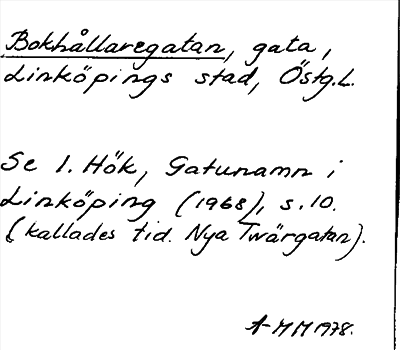 Bokhållaregatan, gata,
Linköpings stad, Östg.L.
Se I. Hök, Gatunamn i
Linköping (1968), s. 10.
(kallades tid. Nya Twärgatan).
A-MM 1978.